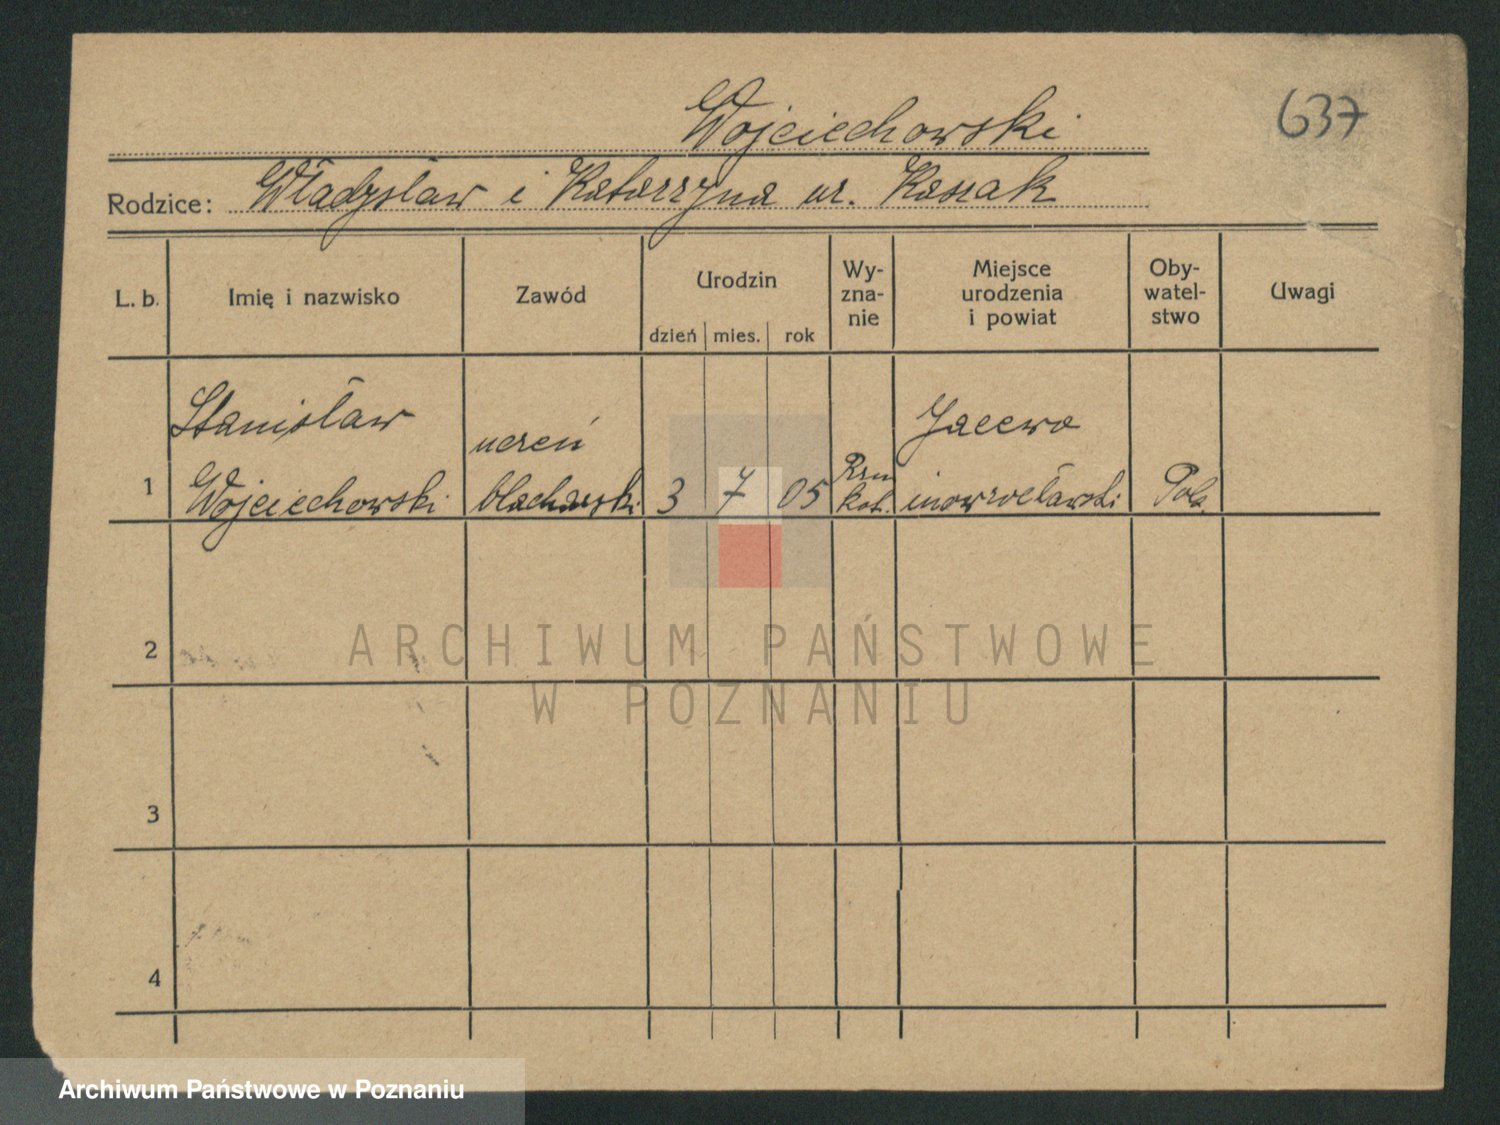 Wojciechowski
637
Rodzice: Władysław i Katarzyna ur. Kaszak
L. b.
Imię i nazwisko
Zawód
Urodzin
dzień
mies.
rok
Wy-
zna-
nie
Miejsce
urodzenia
i powiat
Oby-
watel-
stwo
Uwagi
1
Stanisław
Wojciechowski
uczeń
blacharski
3
7
05
Rzm
kat.
Jacewo
inowrocławski
Pols.
2
3
4
ARCHIWUM PAŃSTWOWE
W POZNANIU
Archiwum Państwowe w Poznaniu